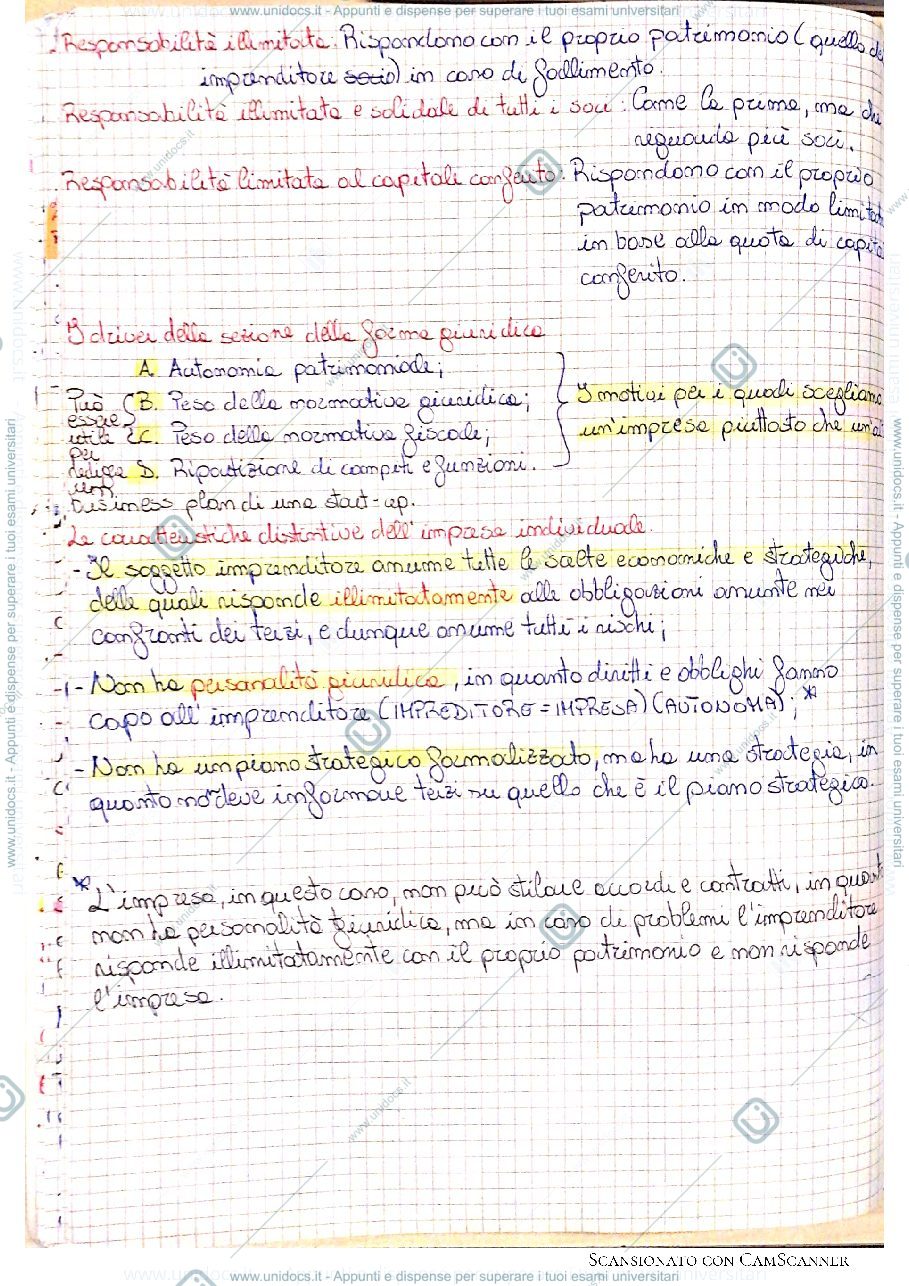 www.unidocs.it - Appunti e dispense per superare i tuoi esami universitari
Responsabilità illimitata: Rispondono con il proprio patrimonio (quello
imprenditore socio) in caso di fallimento.
Responsabilità illimitata e solidale di tutti i soci: Come la prima, ma
riguarda più soci.
Responsabilità limitata al capitali conferito: Rispondono con il proprio
patrimonio in modo
in base alla quota di
conferito.
I driver della sezione della forma giuridica
A. Autonomia patrimoniale;
B. Peso della normativa giuridica;
C. Peso della normativa fiscale;
D. Ripartizione di compiti e funzioni.
I motivi per i quali
un'impresa piuttosto che
Può
essere
utile
per
redigere
un
business plan di una start-up.
Le caratteristiche distintive dell'impresa individuale.
- Il soggetto imprenditore assume tutte le scelte economiche e strategiche,
delle quali risponde illimitatamente alle obbligazioni assunte nei
confronti dei terzi, e dunque assume tutti i rischi;
- Non ha personalità giuridica, in quanto diritti e obblighi fanno
capo all'imprenditore (IMPREDITORE = IMPRESA) (AUTONOMA); *
- Non ha un piano strategico formalizzato, ma ha una strategia, in
quanto deve informare terzi su quello che è il piano strategico.
* L'impresa, in questo caso, non può stilare accordi e contratti, in
non ha personalità giuridica, ma in caso di problemi l'imprenditore
risponde illimitatamente con il proprio patrimonio e non risponde
l'impresa.
SCANSIONATO CON CAMSCANNER
www.unidocs.it - Appunti e dispense per superare i tuoi esami universitari